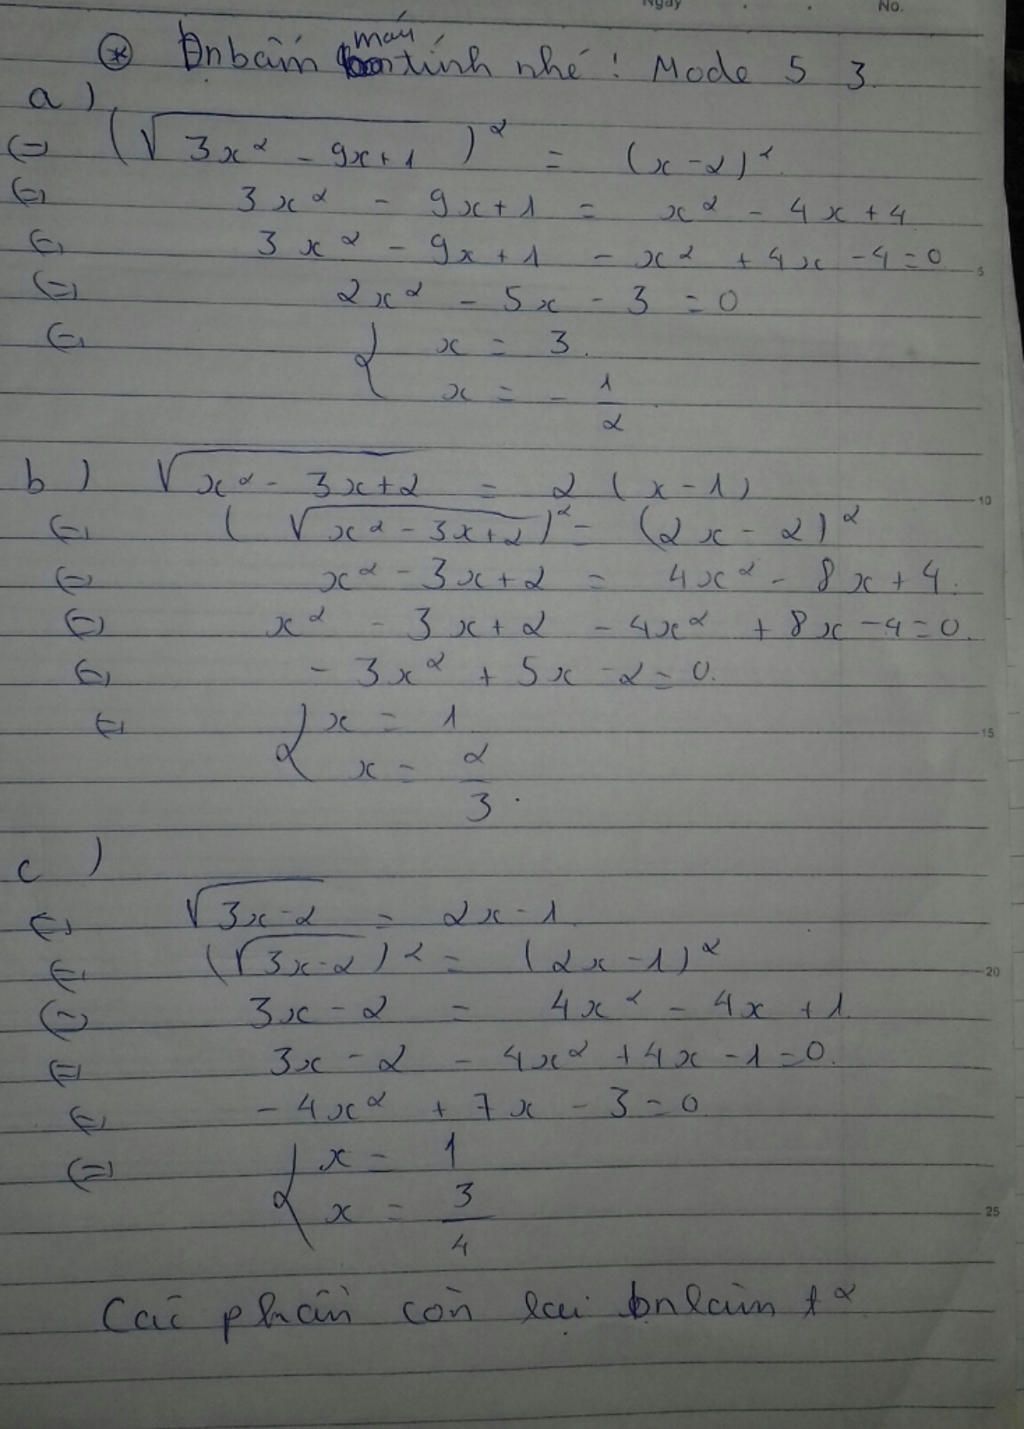 Ngày . . No.
* Bn bấm máy tính nhé! Mode 5 3
a)
(=) (√(3x² - 9x+1))² = (x-2)²
(=) 3x² - 9x+1 = x² - 4x+4
(=) 3x² - 9x+1 - x² + 4x -4=0
5
(=) 2x² - 5x - 3 =0
(=) { x = 3.
x = - 1/2
b) √(x² - 3x+2) = 2(x-1)
10
(=) (√(x² - 3x+2))² = (2x - 2)²
(=) x² - 3x+2 = 4x² - 8x+4.
(=) x² - 3x+2 - 4x² + 8x-4=0.
(=) - 3x² + 5x -2=0.
(=) { x = 1
15
x = 2/3.
c)
(=) √(3x-2) = 2x-1
(=) (√(3x-2))² = (2x-1)²
20
(=) 3x - 2 = 4x² - 4x +1.
(=) 3x - 2 - 4x² +4x -1=0.
(=) - 4x² + 7x - 3=0
(=) { x = 1
x = 3/4
25
Các phần còn lại bn làm t²